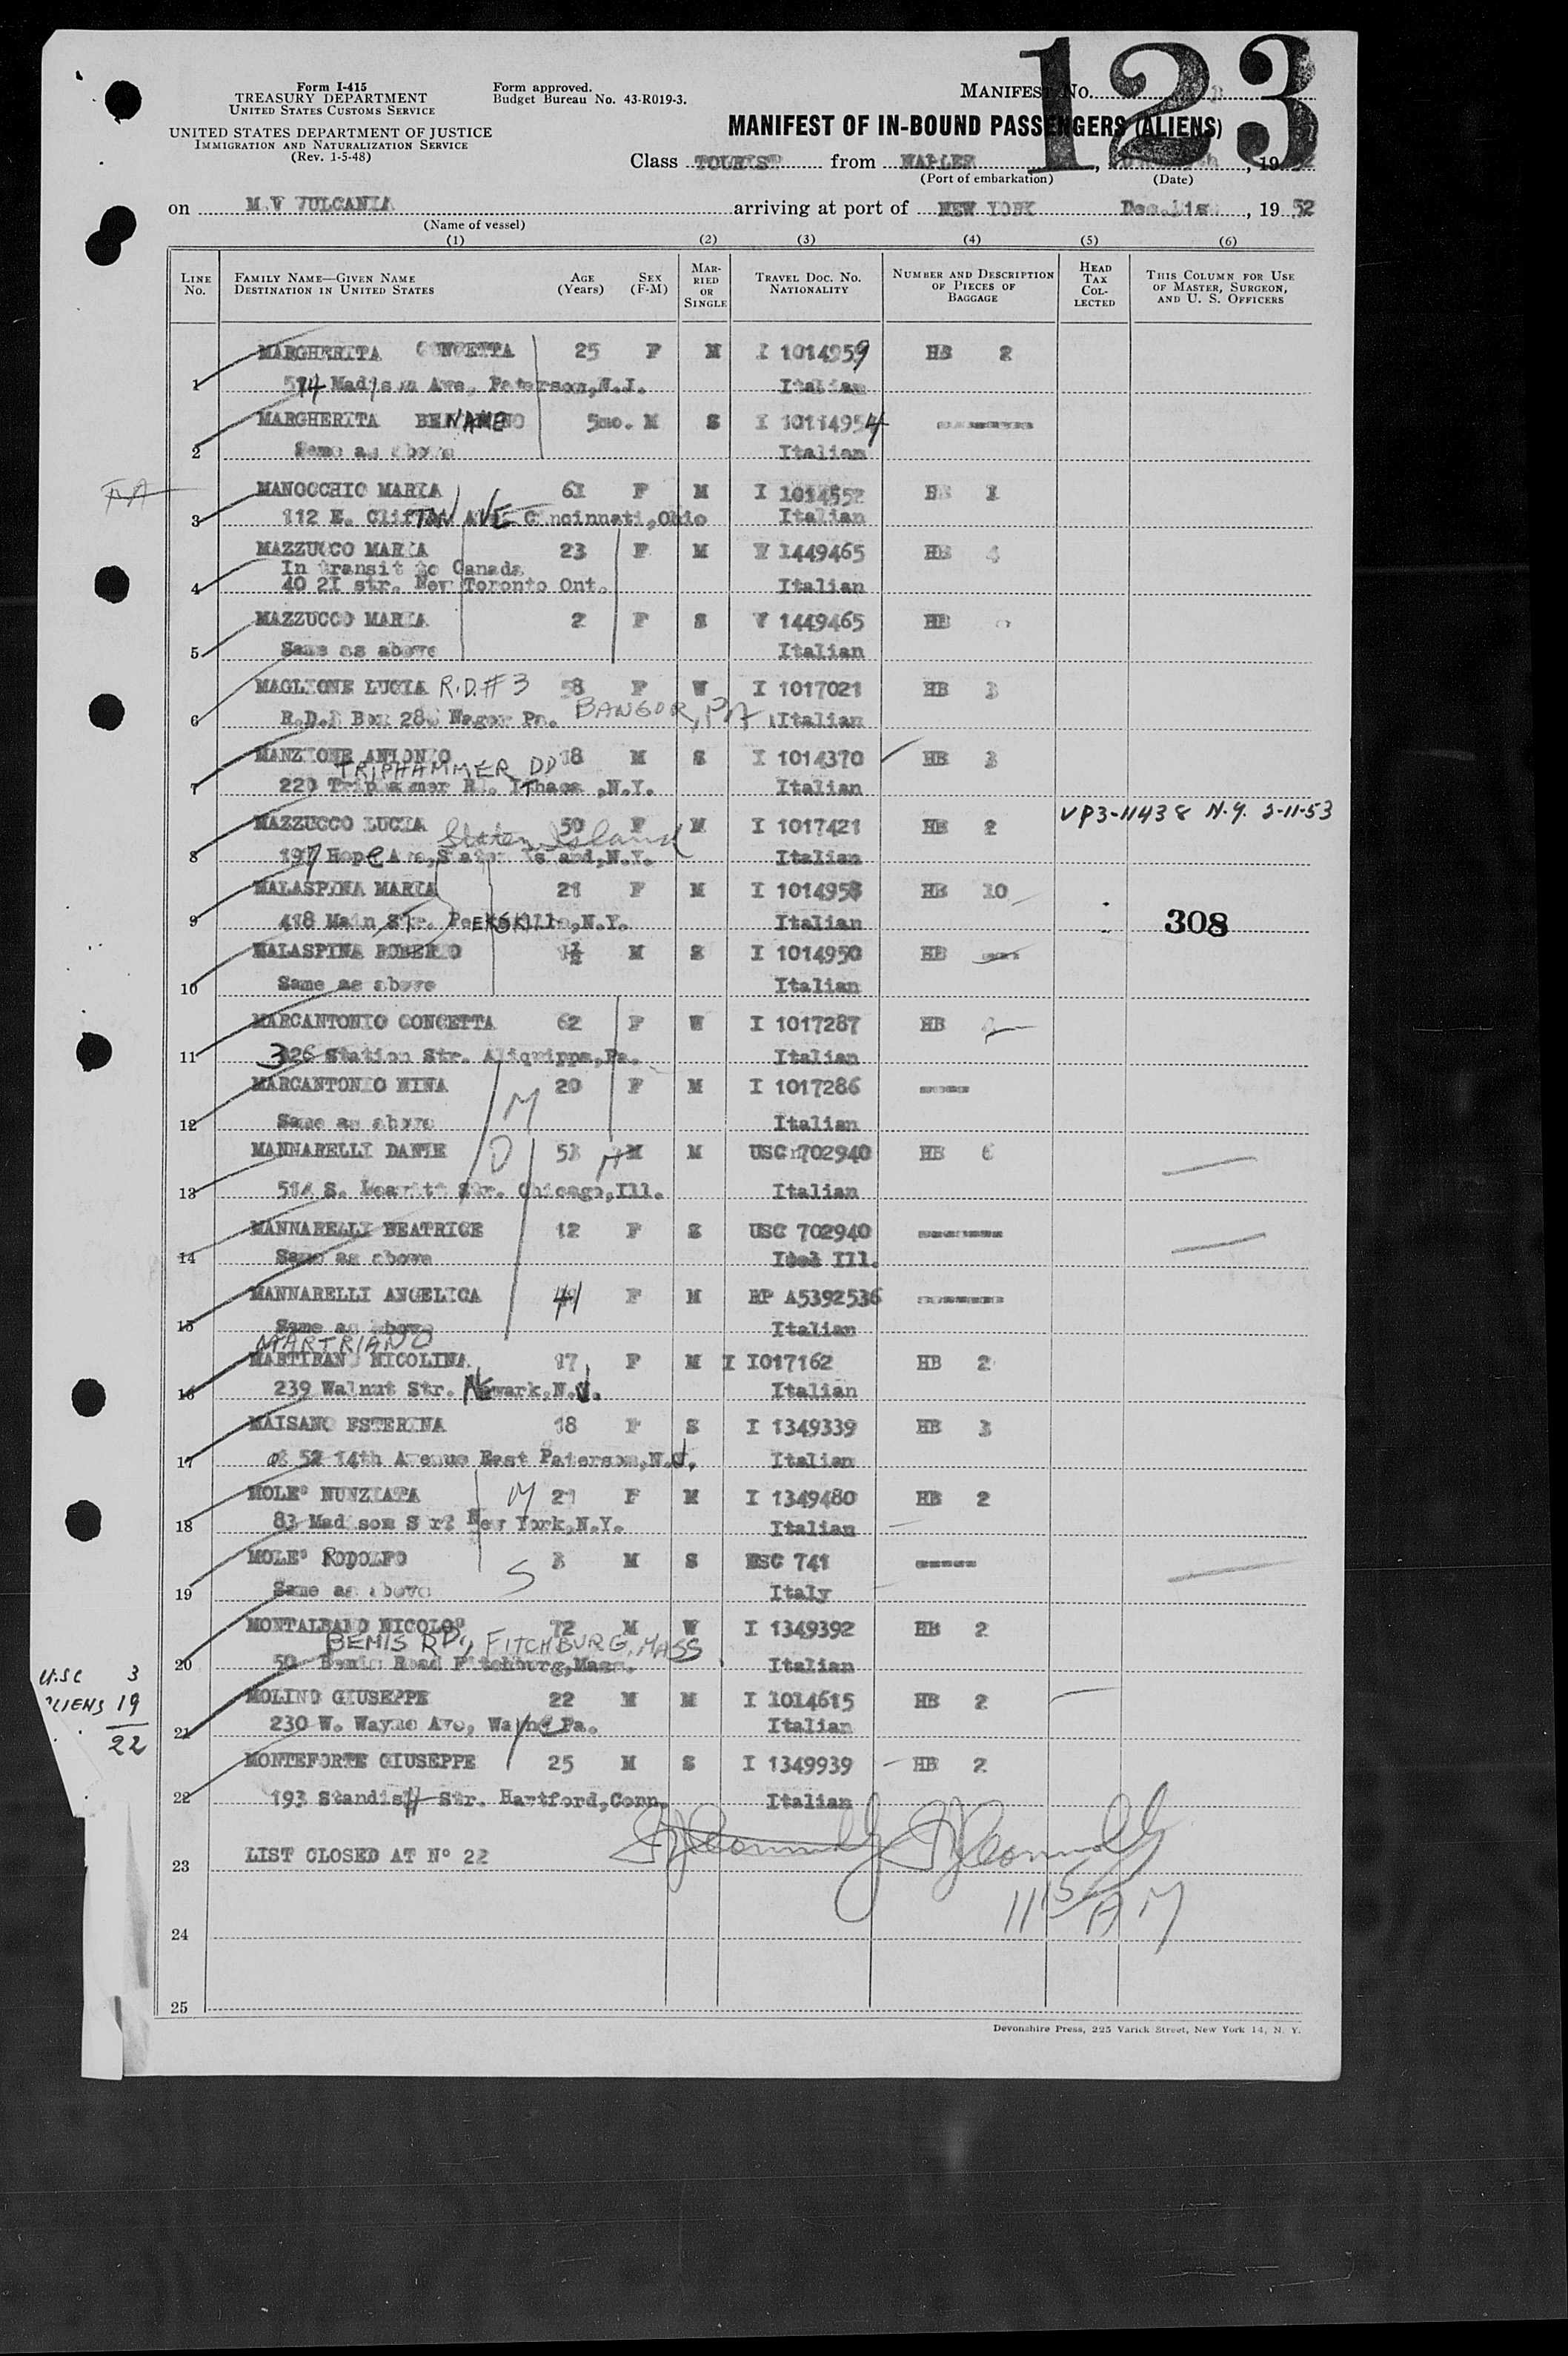 123
Form I-415
TREASURY DEPARTMENT
UNITED STATES CUSTOMS SERVICE
UNITED STATES DEPARTMENT OF JUSTICE
IMMIGRATION AND NATURALIZATION SERVICE
(Rev. 1-5-48)
Form approved.
Budget Bureau No. 43-R019-3.
MANIFEST No.
MANIFEST OF IN-BOUND PASSENGERS (ALIENS)
Class TOURIST from NAPLES, 19 52
(Port of embarkation) (Date)
on M.V VULCANIA arriving at port of NEW YORK Dec. 19 52
(Name of vessel)
(1) (2) (3) (4) (5) (6)
LINE No. FAMILY NAME—GIVEN NAME DESTINATION IN UNITED STATES AGE (Years) SEX (F-M) MARRIED OR SINGLE TRAVEL DOC. No. NATIONALITY NUMBER AND DESCRIPTION OF PIECES OF BAGGAGE HEAD TAX COLLECTED THIS COLUMN FOR USE OF MASTER, SURGEON, AND U. S. OFFICERS
MARGHERITA CONCETTA 25 F M I 1014959 HB 2
1 Madison Ave, Paterson, N.J. Italian
MARGHERITA 5mo. M S I 10114954
2 Same as above Italian
MANOCCHIO MARIA 61 F M I 1014552 HB 1
3 112 E. Clifton AVE Cincinnati, Ohio Italian
MAZZUCCO MARIA 23 F M V 1449465 HB 4
In transit to Canada
4 40 2I str. New Toronto Ont. Italian
MAZZUCCO MARIA 2 F S V 1449465 HB
5 Same as above Italian
MAGLIONE LUCIA R.D.#3 58 F W I 1017021 HB 3
6 R.D. Box 286 Nagor Pa. BANGOR, PA Italian
MANZIONE ANTONIO 18 M S I 1014370 HB 3
TRIPHAMMER
7 220 Triphammer Rd. Ithaca, N.Y. Italian
MAZZUCCO LUCIA 50 F M I 1017421 HB 2 VP3-11438 N.Y. 2-11-53
Staten Island
8 197 Hope Ave, Staten Island, N.Y. Italian
MALASPINA MARIA 21 F M I 1014958 HB 10
9 418 Main Str. PeEKSKILL, N.Y. Italian 308
MALASPINA ROBERTO 1½ M S I 1014950 HB
10 Same as above Italian
MARCANTONIO CONCETTA 62 F W I 1017287 HB
11 326 Station Str. Aliquippa, Pa. Italian
MARCANTONIO NINA 20 F M I 1017286
12 Same as above M Italian
MANNARELLI DANTE 53 M M USC 702940 HB 6
13 S. Leavitt Str. Chicago, Ill. Italian
MANNARELLI BEATRICE 12 F S USC 702940
14 Same as above Ill.
MANNARELLI ANGELICA 41 F M RP A5392536
15 Same as above Italian
MARTRIANO
MARTIRANO NICOLINA 17 F M I I017162 HB 2
16 239 Walnut Str. Newark, N.J. Italian
MAISANO ESTERINA 18 F S I 1349339 HB 3
17 52 14th Avenue East Paterson, N.J. Italian
MOLE' NUNZIATA M 21 F M I 1349480 HB 2
18 83 Madison Str. New York, N.Y. Italian
MOLE' RODOLFO S 3 M S USC 741
19 Same as above Italy
MONTALBANO NICOLO' 72 M W I 1349392 HB 2
BEMIS RD., FITCHBURG, MASS
20 50 Bemis Road Fitchburg, Mass. Italian
MOLINO GIUSEPPE 22 M M I 1014615 HB 2
21 230 W. Wayne Ave, Wayne Pa. Italian
MONTEFORTE GIUSEPPE 25 M S I 1349939 HB 2
22 193 Standish Str. Hartford, Conn. Italian
U.SC 3
ALIENS 19
22
23 LIST CLOSED AT N° 22
11 15 AM
24
25
Devonshire Press, 225 Varick Street, New York 14, N. Y.